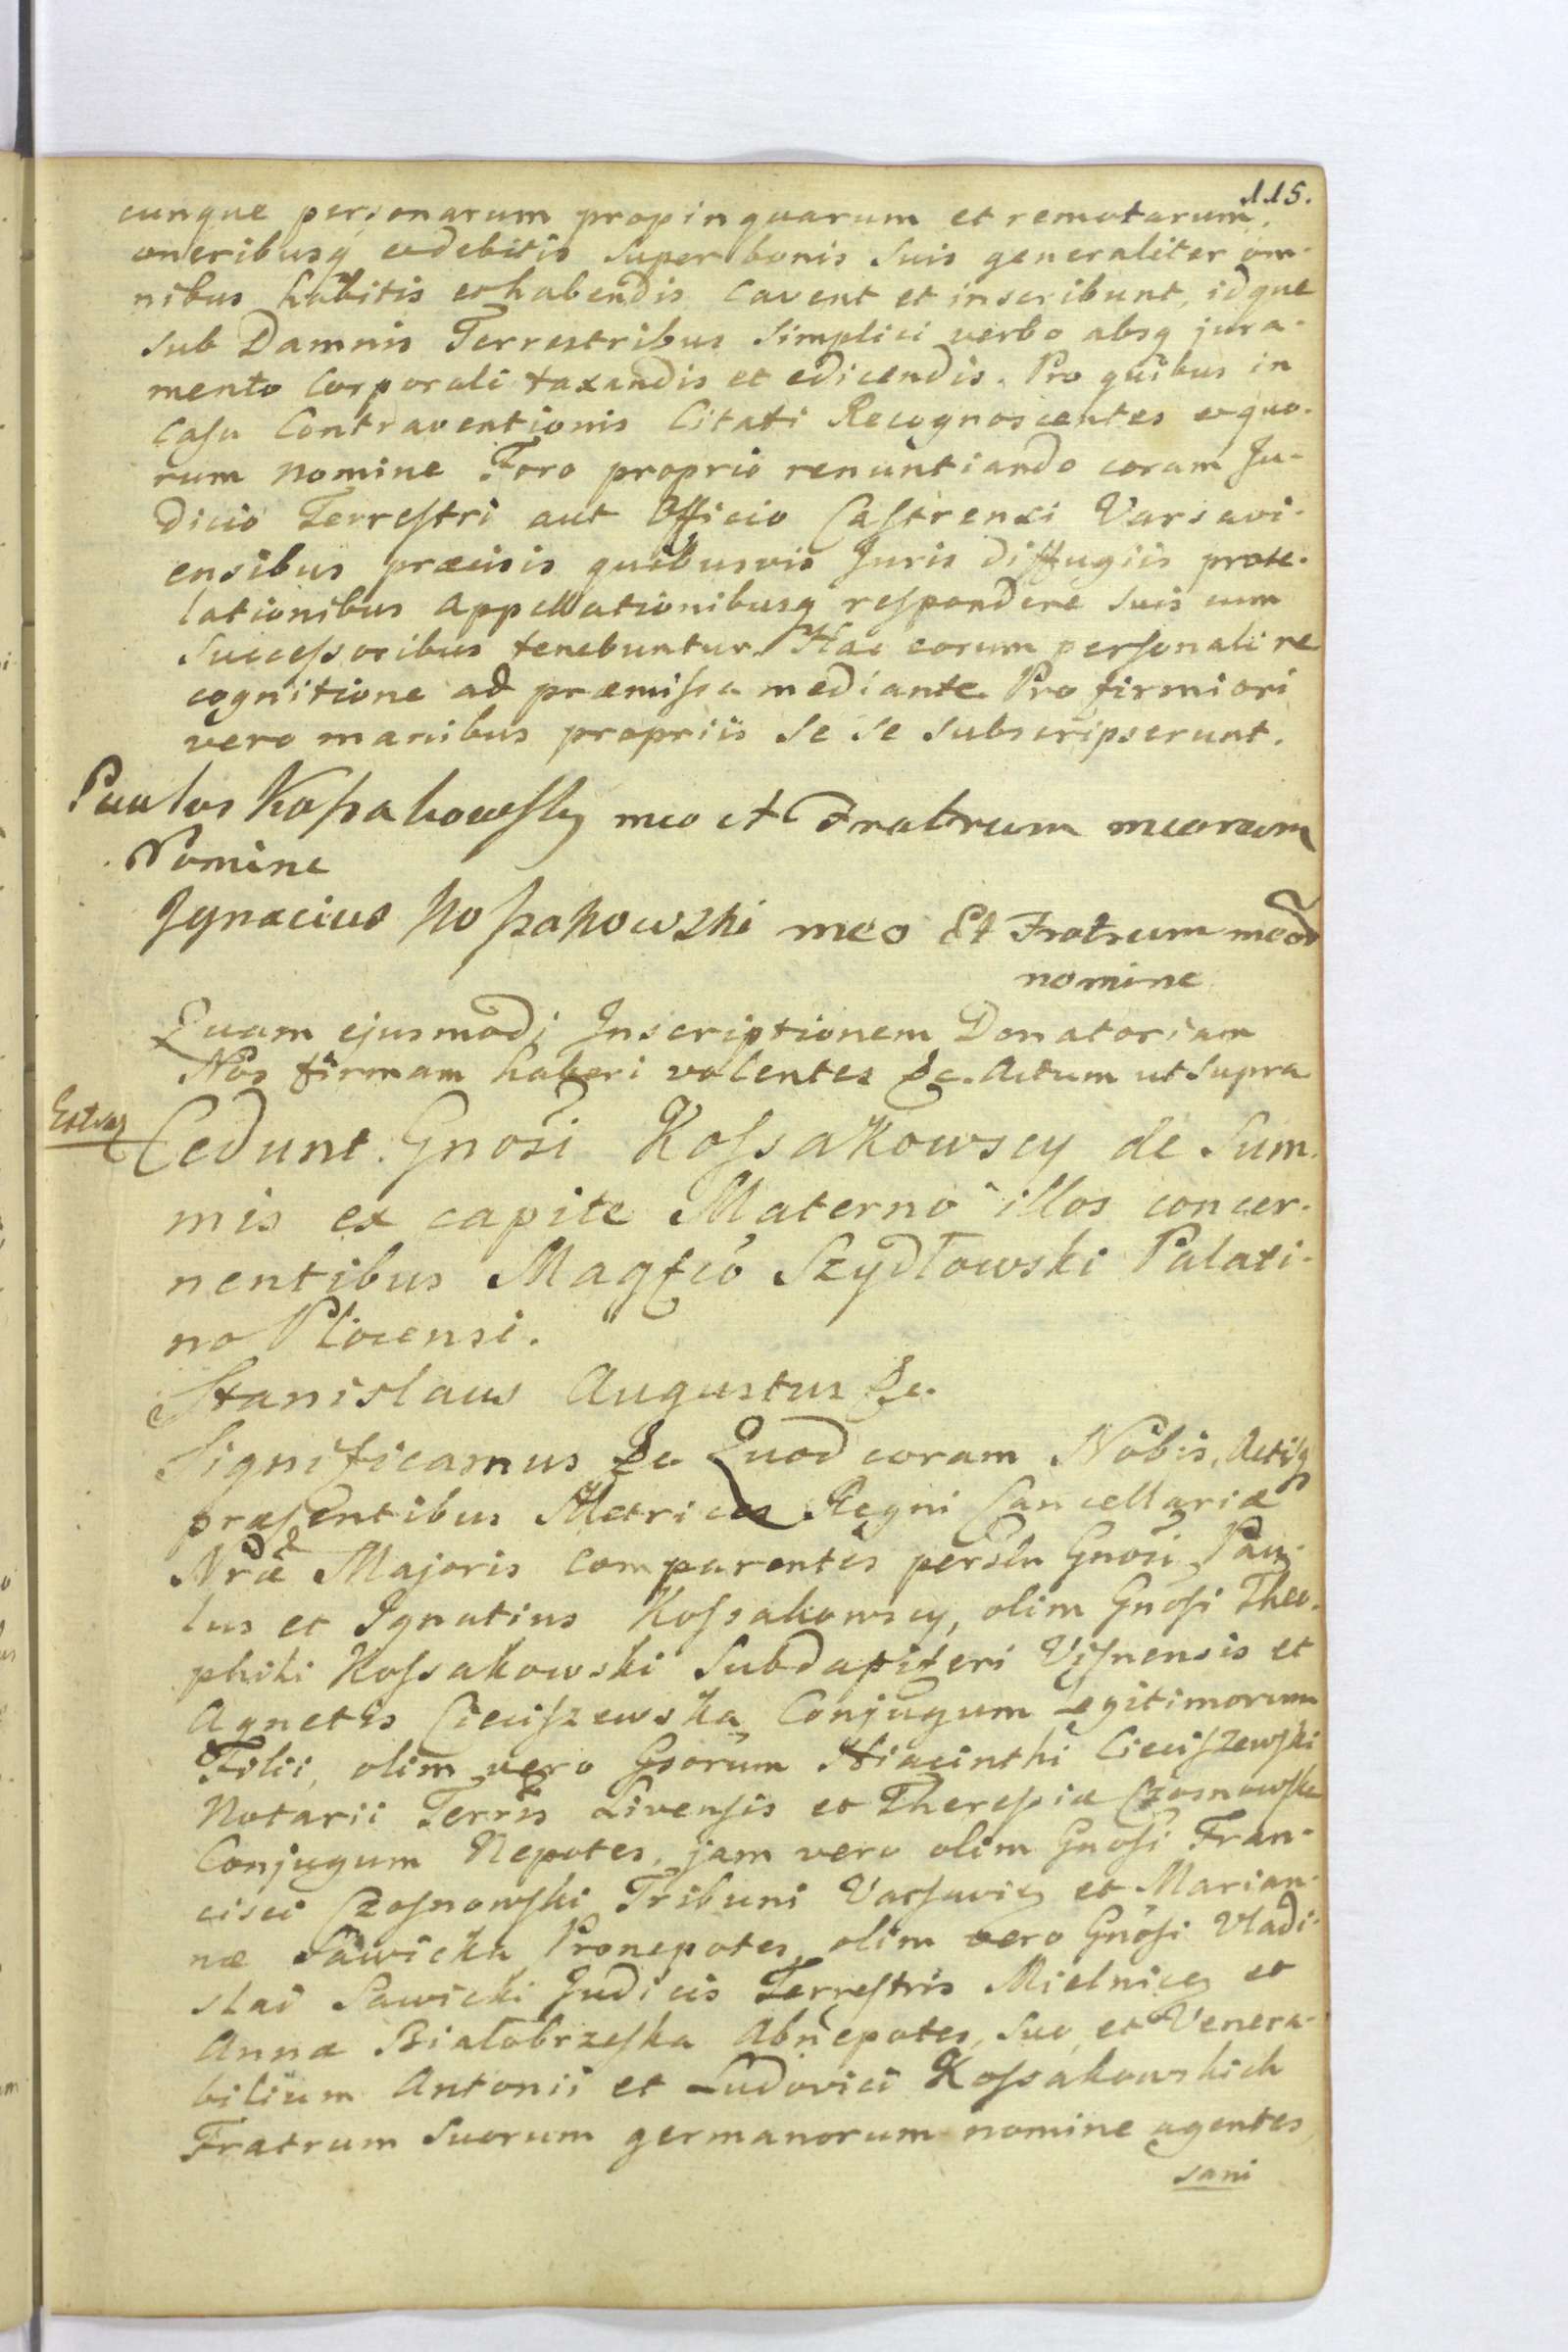 115.
cunque personarum propinquarum et remotarum,
oneribusq et debitis super bonis suis generaliter om-
nibus habitis et habendis cavent et inscribunt, idque
sub Damnis Terrestribus simplici verbo absq jura-
mento Corporali taxandis et edicendis. Pro quibus in
Casu Contraventionis Citati Recognoscentes et quo-
rum nomine Foro proprio renuntiando coram Ju-
dicio Terrestri aut Officio Castrensi Varsavi-
ensibus præcisis quibusvis Juris diffugiis prote-
lationibus Appellationibusq respondere suis cum
Successoribus tenebuntur. Hac eorum personali re
cognitione ad præmissa mediante. Pro firmiori
vero manibus propriis se se subscripserunt.
Paulus Kossakowsky meo et Fratrum meorum
Nomine
Ignacius Kossakowski meo Et Fratrum meor
nomine
Quam ejusmodi Inscriptionem Donatoriam
Nos firmam haberi volentes &c. Actum ut supra
Cedunt Gnosi Kossakowscy de Sum-
mis ex capite Materno illos concer-
nentibus Magfco Szydłowski Palati-
no Plocensi.
Stanislaus Augustus &c.
Significamus &c Quod coram Nobis, Actisq
præsentibus Metrices Regni Cancellariæ
Nræ Majoris comparentes persln Gnosi Pau-
lus et Ignatius Kossakowscy, olim Gnosi Theo-
phili Kossakowski Subdapiferi Visnensis et
Agnetis Cieciszewska Conjugum Legitimorum
Filii, olim vero Gsorum Hiacinthi Cieciszewski
Notarii Terris Livensis et Theresiæ Czosnowska
Conjugum Nepotes, jam vero olim Gnosi Fran-
cisci Czosnowski Tribuni Varsavien et Marian-
næ Sawicka Pronepotes, olim vero Gnosi Vladi-
slai Sawicki Judicis Terrestris Mielnicen et
Annæ Białobrzeska Abnepotes, suo, et Venera-
bilium Antonii et Ludovici Kossakowskich
Fratrum Suorum germanorum nomine agentes,
sani